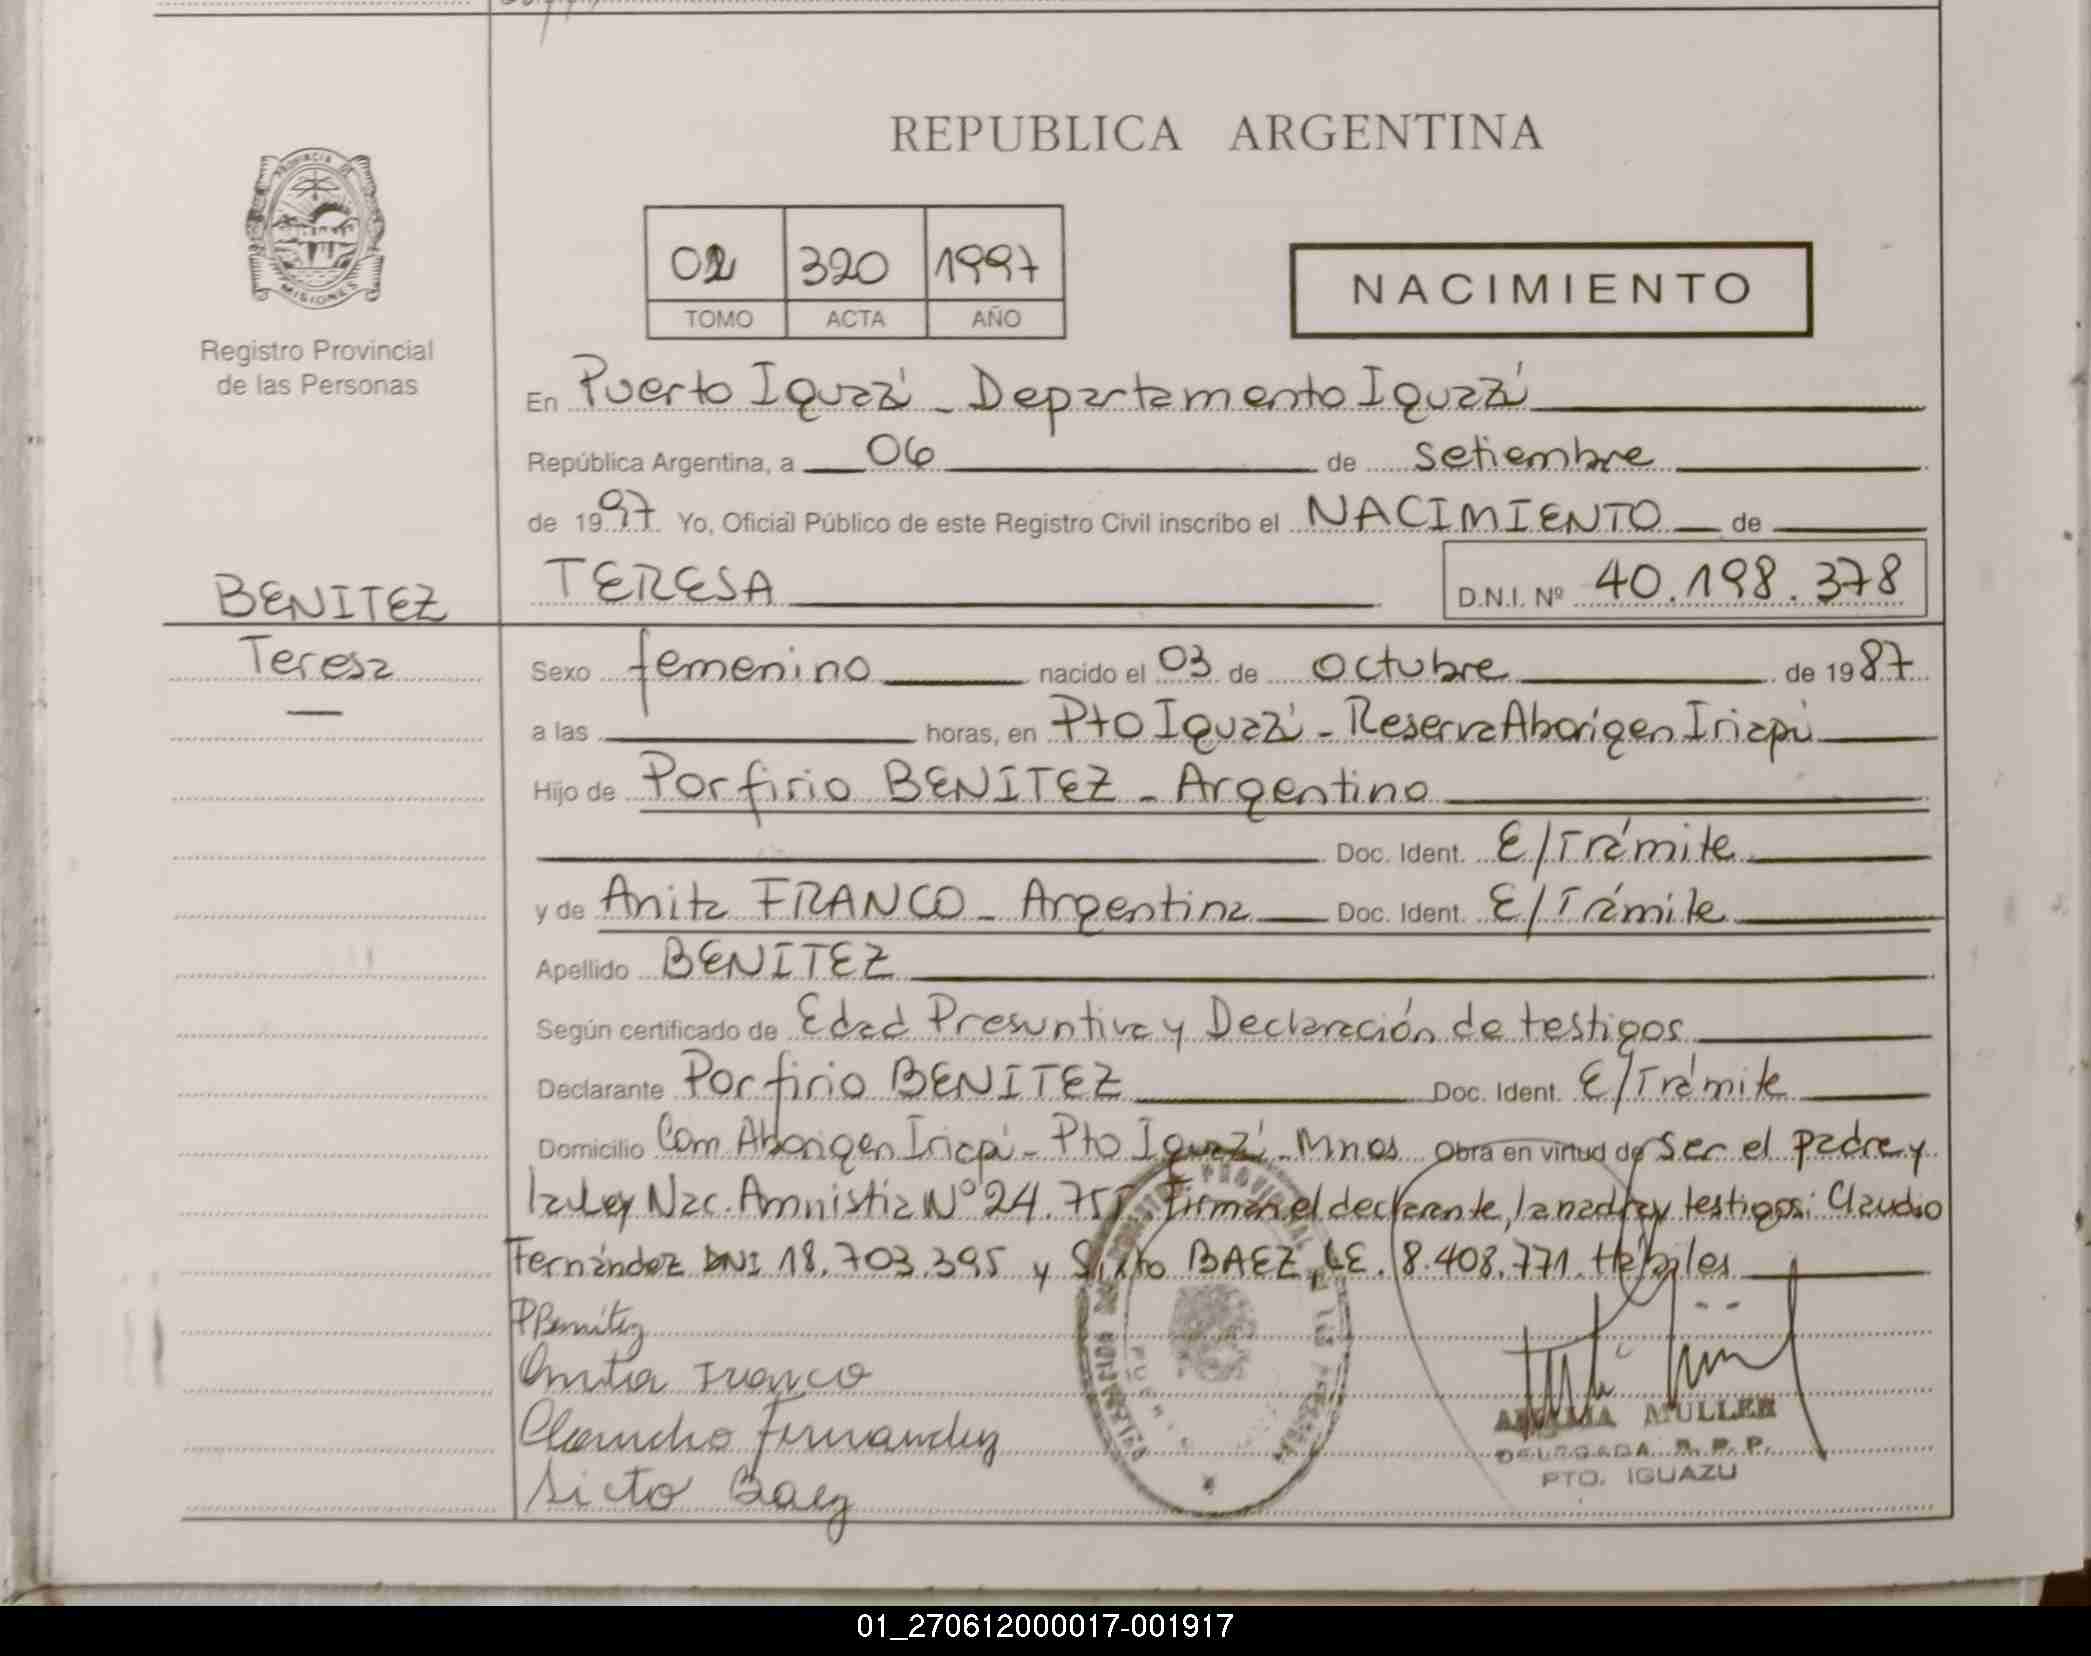 REPUBLICA ARGENTINA
PROVINCIA DE
MISIONES
Registro Provincial
de las Personas
02 320 1997
TOMO ACTA AÑO
NACIMIENTO
En Puerto Iguazú - Departamento Iguazú
República Argentina, a 06 de setiembre
de 1997 Yo, Oficial Público de este Registro Civil inscribo el NACIMIENTO de
BENITEZ
Teresa
TERESA D.N.I. Nº 40.198.378
Sexo femenino nacido el 03 de octubre de 1987
a las horas, en Pto Iguazú - Reserva Aborigen Iriapú
Hijo de Porfirio BENITEZ - Argentino
Doc. Ident. E/Trámite
y de Anita FRANCO - Argentina Doc. Ident. E/Trámite
Apellido BENITEZ
Según certificado de Edad Presuntiva y Declaración de testigos
Declarante Porfirio BENITEZ Doc. Ident. E/Trámite
Domicilio Com Aborigen Iriapú - Pto Iguazú - Mnes Obra en virtud de Ser el padre y
la Ley Nac. Amnistia Nº 24.755. Firman el declarante, la madre y testigos: Claudio
Fernández DNI 18.703.395 y Sixto BAEZ, LE. 8.408.771. Hábiles
PBenitez
Anita Franco
Claudio Fernandez
Sicto Baez
MULLER
DELEGADA R. P. P.
PTO. IGUAZU
01_270612000017-001917